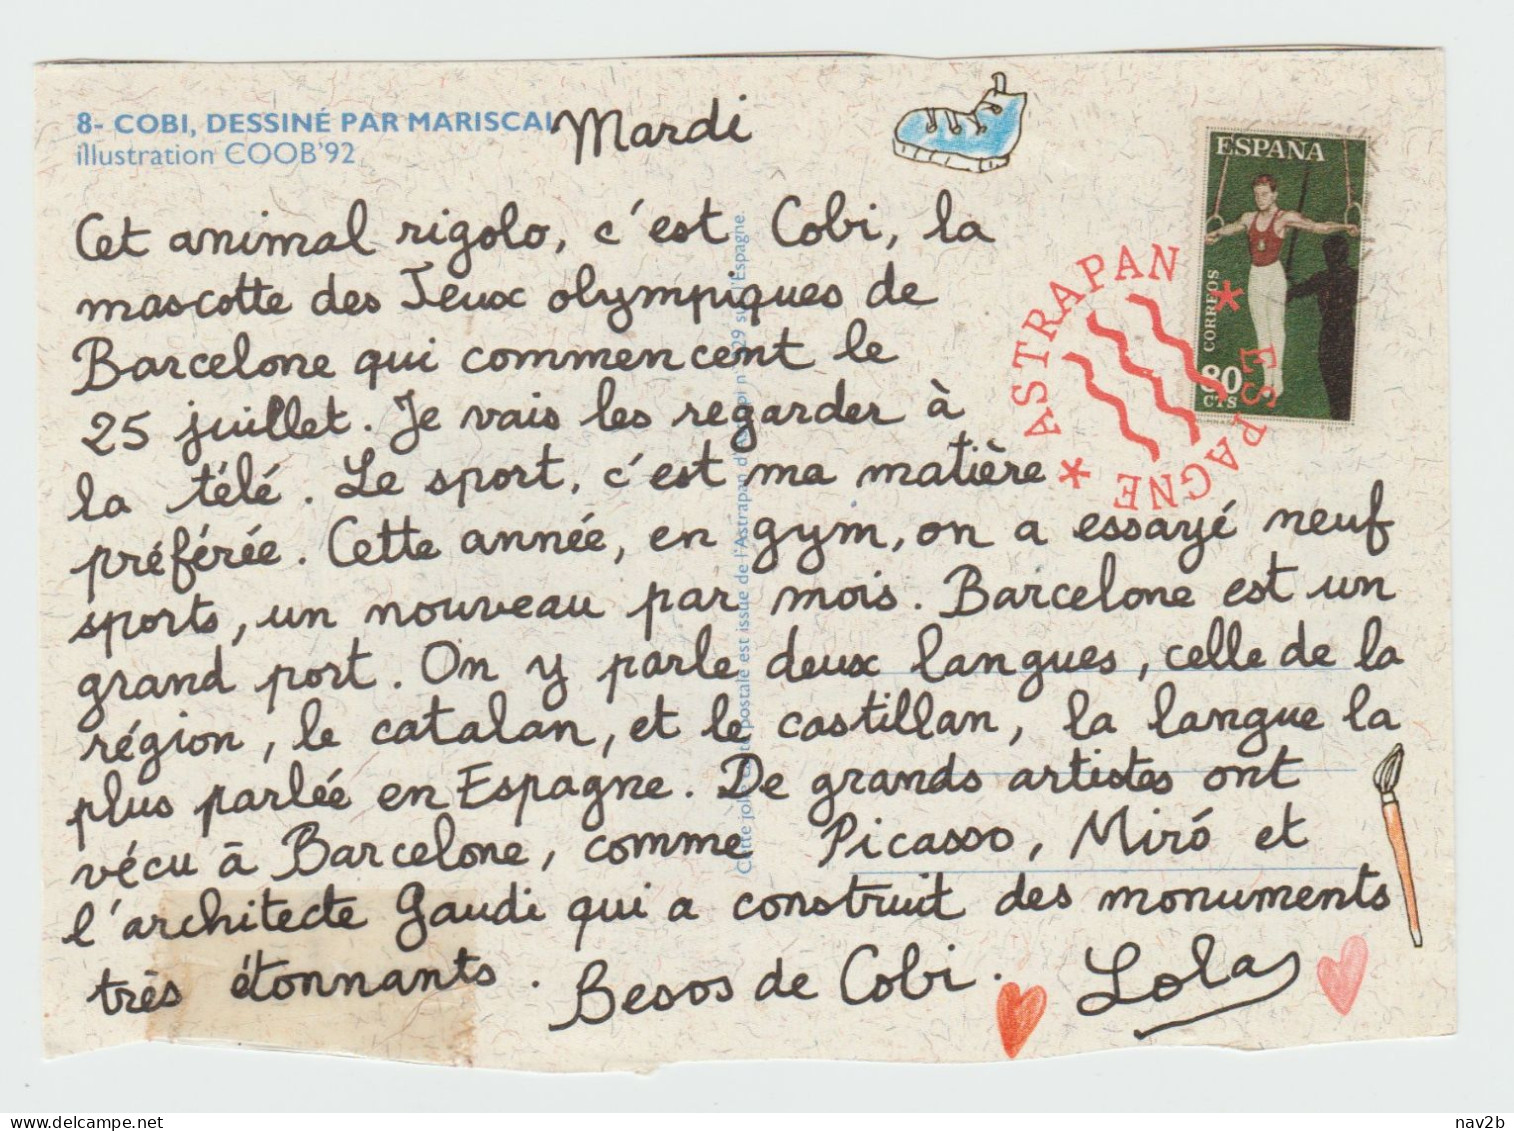 8- COBI, DESSINÉ PAR MARISCAL
illustration COOB'92
Mardi
Cet animal rigolo, c'est Cobi, la
mascotte des Jeux olympiques de
Barcelone qui commencent le
25 juillet. Je vais les regarder à
la télé. Le sport, c'est ma matière
préférée. Cette année, en gym, on a essayé neuf
sports, un nouveau par mois. Barcelone est un
grand port. On y parle deux langues, celle de la
région, le catalan, et le castillan, la langue la
plus parlée en Espagne. De grands artistes ont
vécu à Barcelone, comme Picasso, Miró et
l'architecte Gaudi qui a construit des monuments
très étonnants. Besos de Cobi. Lola
ESPANA
CORREOS
80
CTS
* ASTRAPAN * ESPAGNE
postale est issue de l'Astrapan
l'Espagne.
nav2b